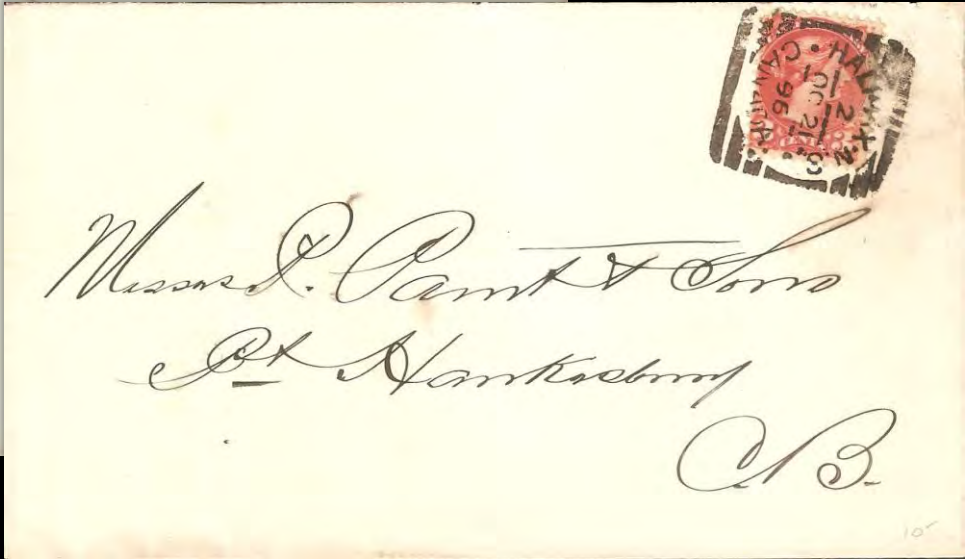 HALIFAX. N.S. • CANADA •
1
OC 21
96
Messrs P. Paint & Sons
Pt Hawkesbury
C.B.
10